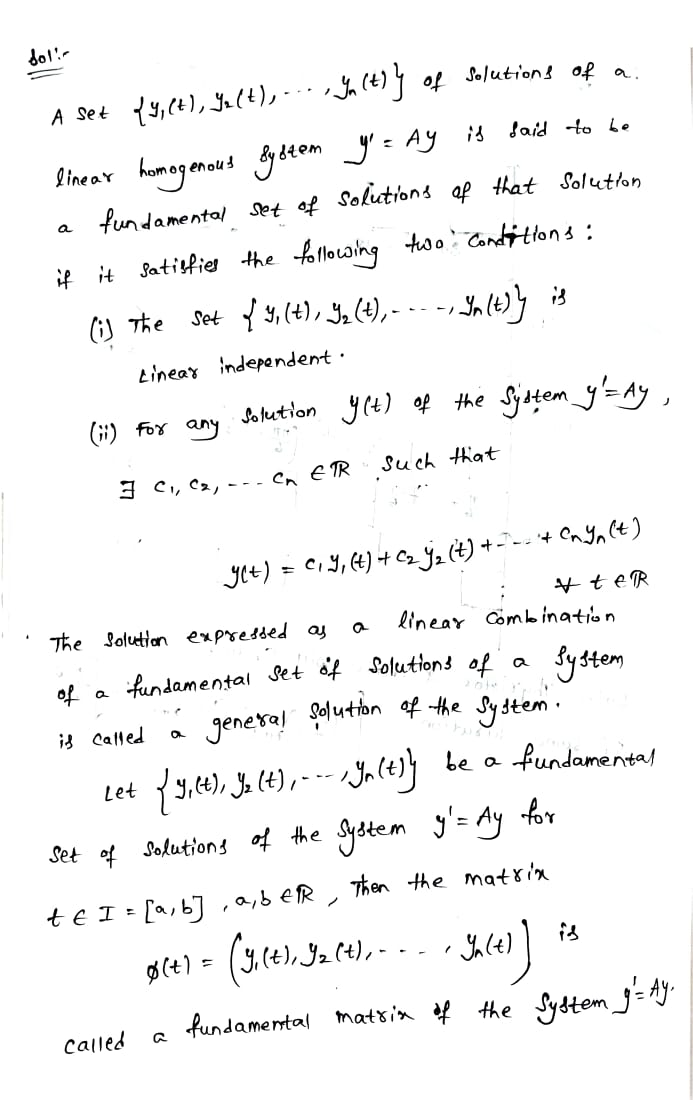 Sol:-
A set {y₁(t), y₂(t), - - - , yₙ(t)} of solutions of a.
linear homogenous system y' = Ay is said to be
a fundamental set of solutions of that solution
if it satisfies the following two conditions :
(i) The set {y₁(t), y₂(t), - - - -, yₙ(t)} is
Linear independent.
(ii) For any solution y(t) of the system y'=Ay,
∃ c₁, c₂, - - - cₙ ∈ ℝ such that
y(t) = c₁y₁(t) + c₂y₂(t) + - - - + cₙyₙ(t)
∀ t ∈ ℝ
The solution expressed as a linear combination
of a fundamental set of solutions of a system
is called a general solution of the system.
Let {y₁(t), y₂(t), - - - , yₙ(t)} be a fundamental
set of solutions of the system y' = Ay for
t ∈ I = [a, b] , a, b ∈ ℝ , Then the matrix
φ(t) = (y₁(t), y₂(t), - - - , yₙ(t)] is
called a fundamental matrix of the system y'=Ay.